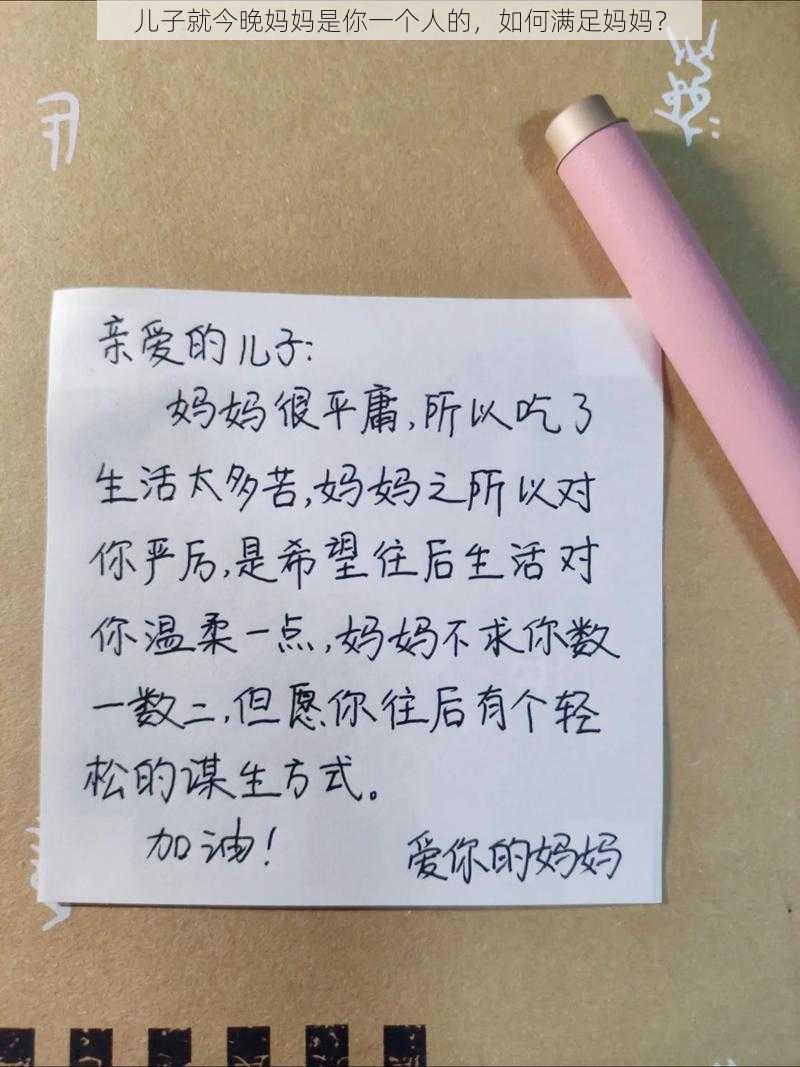 儿子就今晚妈妈是你一个人的，如何满足妈妈？
亲爱的儿子:
妈妈很平庸,所以吃了
生活太多苦,妈妈之所以对
你严厉,是希望往后生活对
你温柔一点,妈妈不求你数
一数二,但愿你往后有个轻
松的谋生方式。
加油!
爱你的妈妈